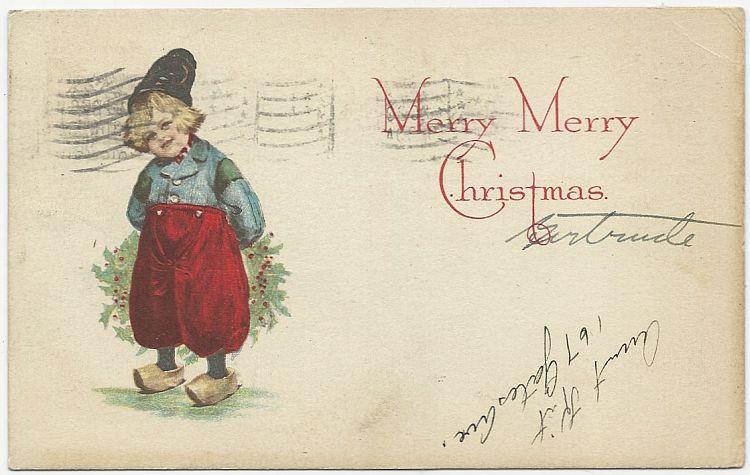 Merry Merry
Christmas.
Gertrude
Aunt Kit
167 Gates Ave.